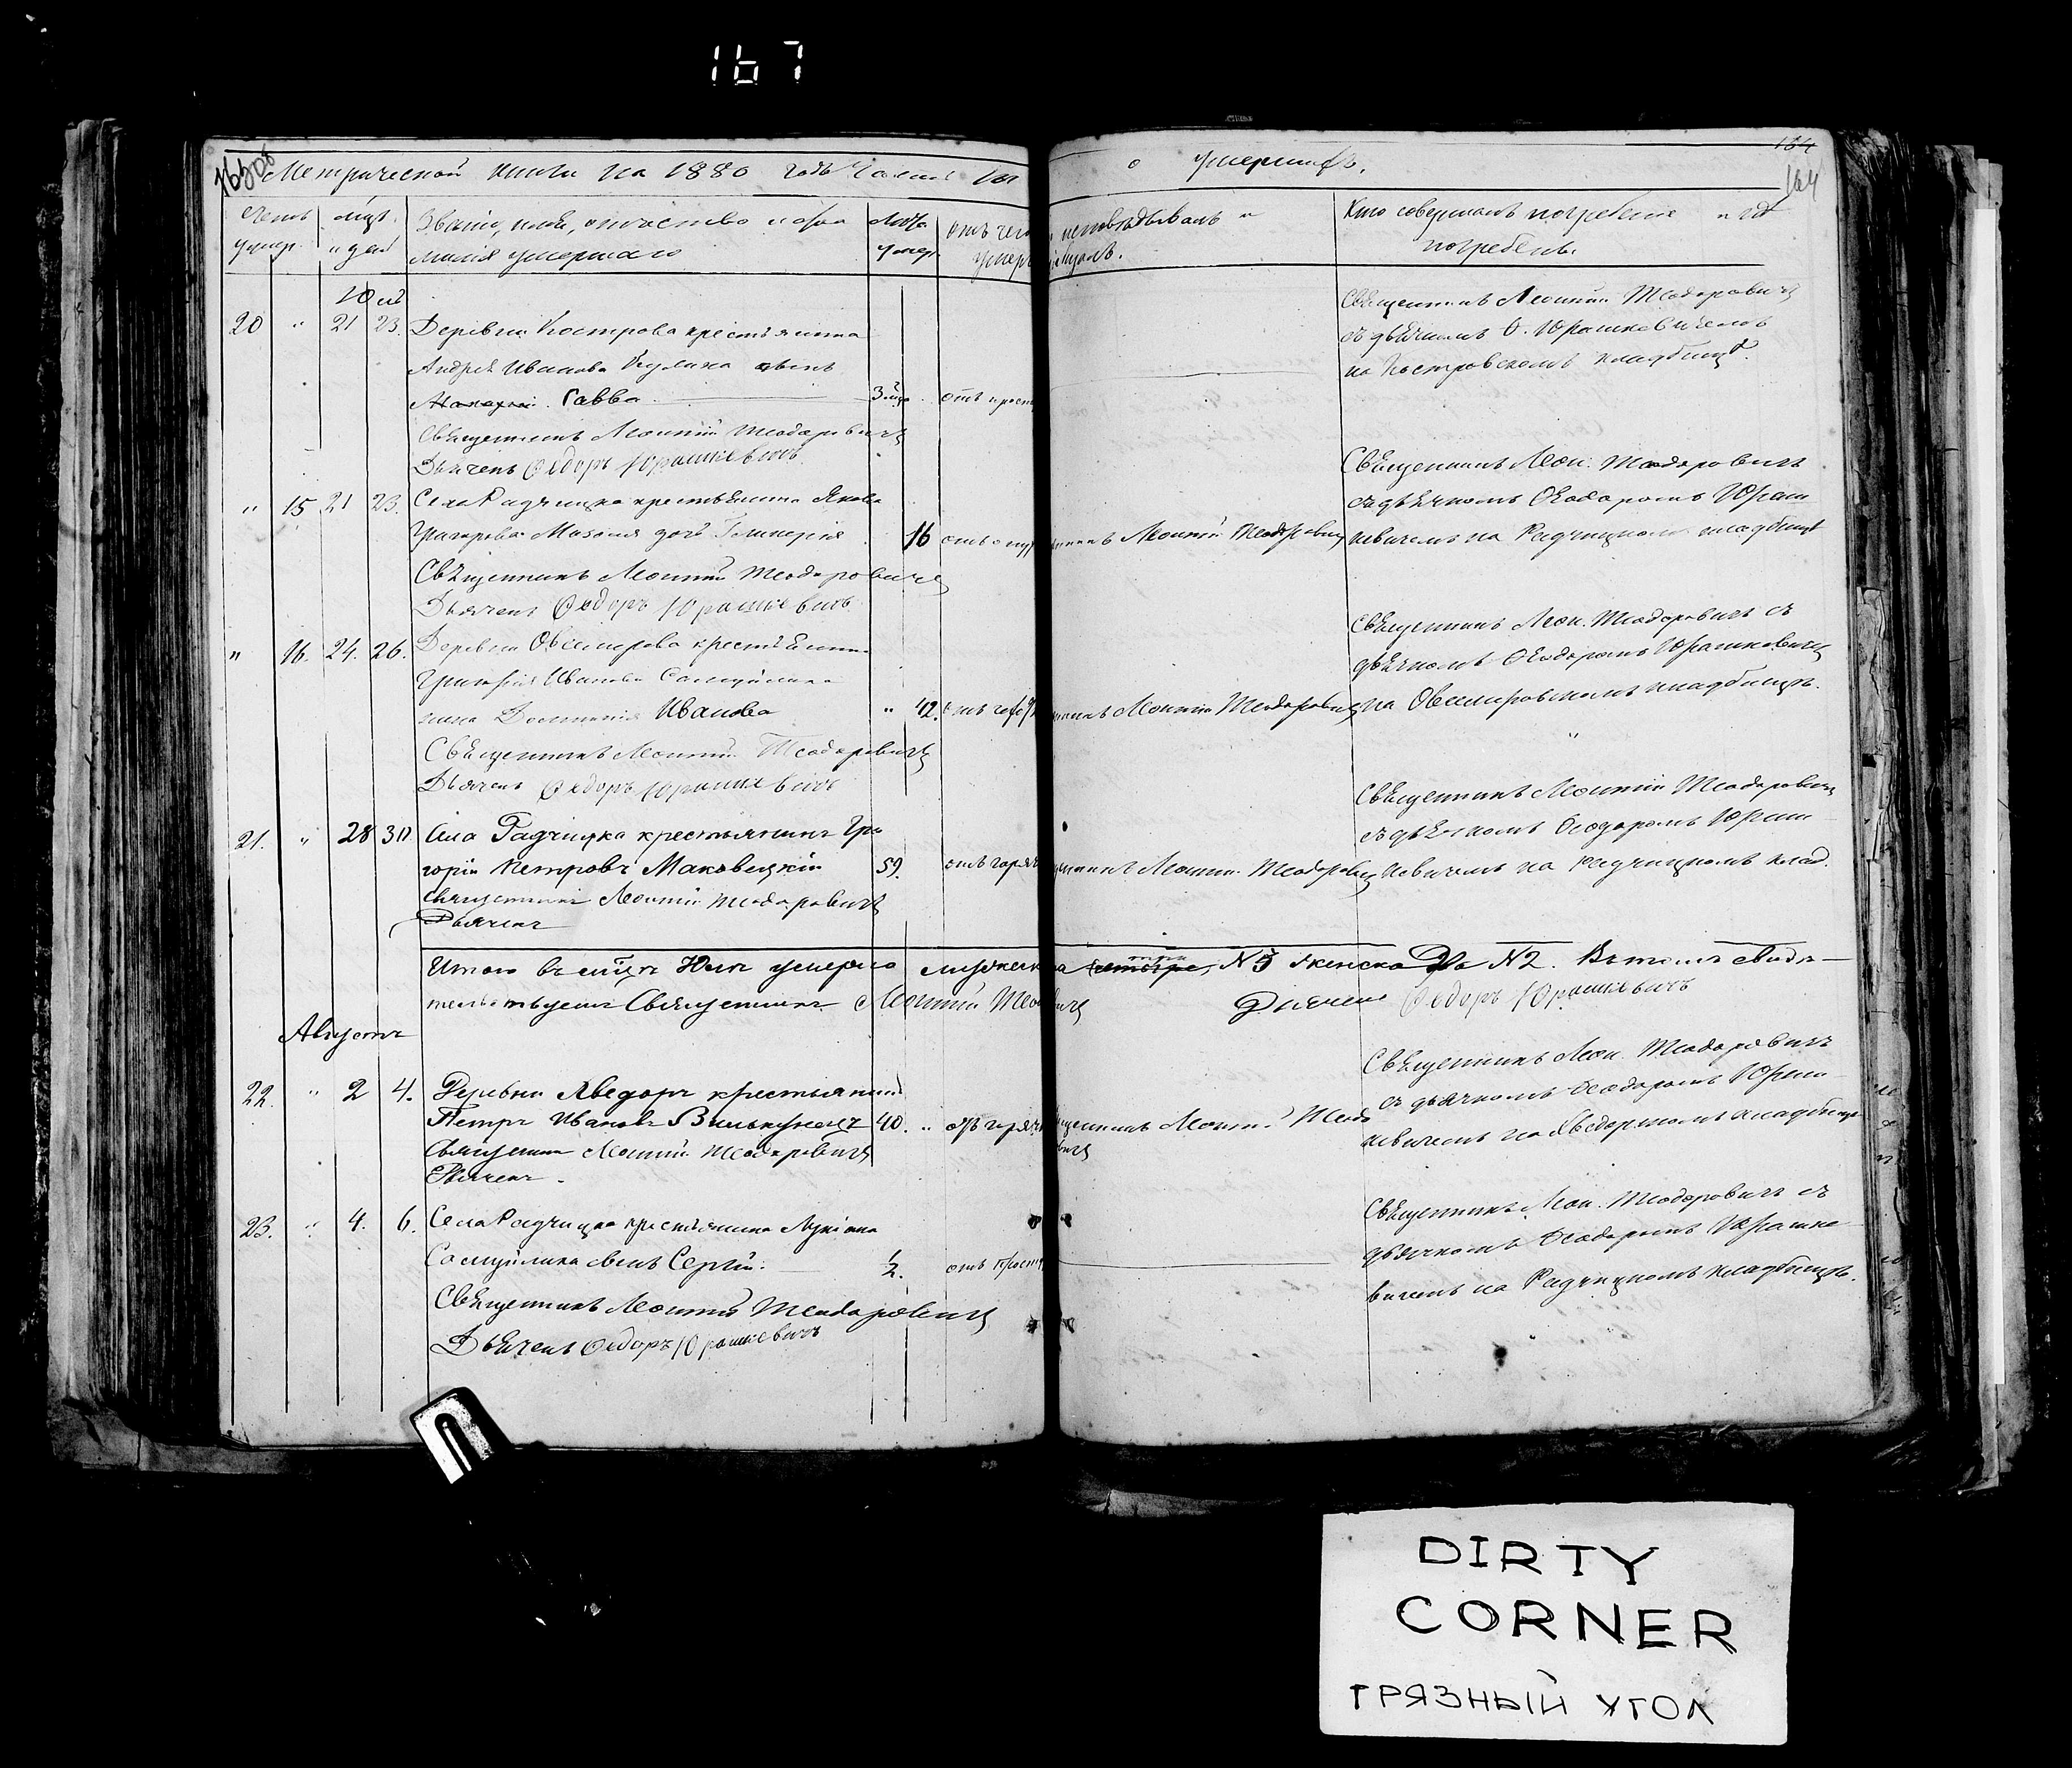 167
163об
Метрической книги на 1880 годъ Часть III
о умершихъ.
164
164
Счетъ умер.
мѣсяц. и день
Званіе, имя, отчество и фамилія умершаго
Лѣта умер.
Отъ чего умеръ
исповѣдывалъ и
Кто совершалъ погребеніе и гдѣ
погребенъ.
Юль
20 " 21 23. Деревни Кострова крестьянина
Андрея Иванова Кулика сынъ
Савва 3 мѣс. отъ
Священникъ Леонтій Теодоровичъ
Дьячекъ Ѳедоръ Юрашкевичъ
Священникъ Леонтій Теодоровичъ
съ дьячкомъ Ѳ. Юрашкевичемъ
на Костровскомъ кладбищѣ.
" 15 21 23. Села Радчицка крестьянина Якова
Григорова дочь Гликерія 16 отъ
Священникъ Леонтій Теодоровичъ
Дьячекъ Ѳедоръ Юрашкевичъ
Леонтій Теодоровичъ
Священникъ Леон. Теодоровичъ
съ дьячкомъ Ѳеодоромъ Юраш
кевичемъ на Радчицкомъ кладбищѣ
" 16. 24. 26. Деревни Овсемирова крестьянина
Григорія Иванова Самуйлика
жена Домникія Иванова " 42. отъ
Священникъ Леонтій Теодоровичъ
Дьячекъ Ѳедоръ Юрашкевичъ
Леонтій Теодоровичъ
Священникъ Леон. Теодоровичъ съ
дьячкомъ Ѳеодоромъ Юрашкевичемъ
на Овсемировскомъ кладбищѣ.
21. " 28 30. Села Радчицка крестьянинъ Гри
горій Петровъ Маковецкій 59. отъ горяч
Священникъ Леонтій Теодоровичъ
Дьячекъ
Леонтій Теодоровичъ
Священникъ Леонтій Теодоровичъ
съ дьячкомъ Ѳеодоромъ Юраш
кевичемъ на Радчицкомъ клад.
Итого въ мѣсяцѣ Юлѣ умерло мужеска четыре три №3 женска два №2. Въ томъ свидѣ
тельствуетъ Священникъ Леонтій
Дьячекъ Ѳедоръ Юрашкевичъ
Августъ
22. " 2 4. Деревни Яведоръ крестьянинъ
Петръ Ивановъ Вилькунецъ 40. " отъ горяч
Священникъ Леонтій Теодоровичъ
Дьячекъ.
Священникъ Леон. Теодоровичъ
съ дьячкомъ Ѳеодоромъ Юраш
кевичемъ на Яведорскомъ кладбищѣ
23. " 4. 6. Села Радчицка крестьянина Лукіана
Самуйлика сынъ Сергій. 1/2. отъ
Священникъ Леонтій Теодоровичъ
Дьячекъ Ѳедоръ Юрашкевичъ
Священникъ Леон. Теодоровичъ съ
дьячкомъ Ѳеодоромъ Юрашке
вичемъ на Радчицкомъ кладбищѣ.
DIRTY
CORNER
ГРЯЗНЫЙ УГОЛ